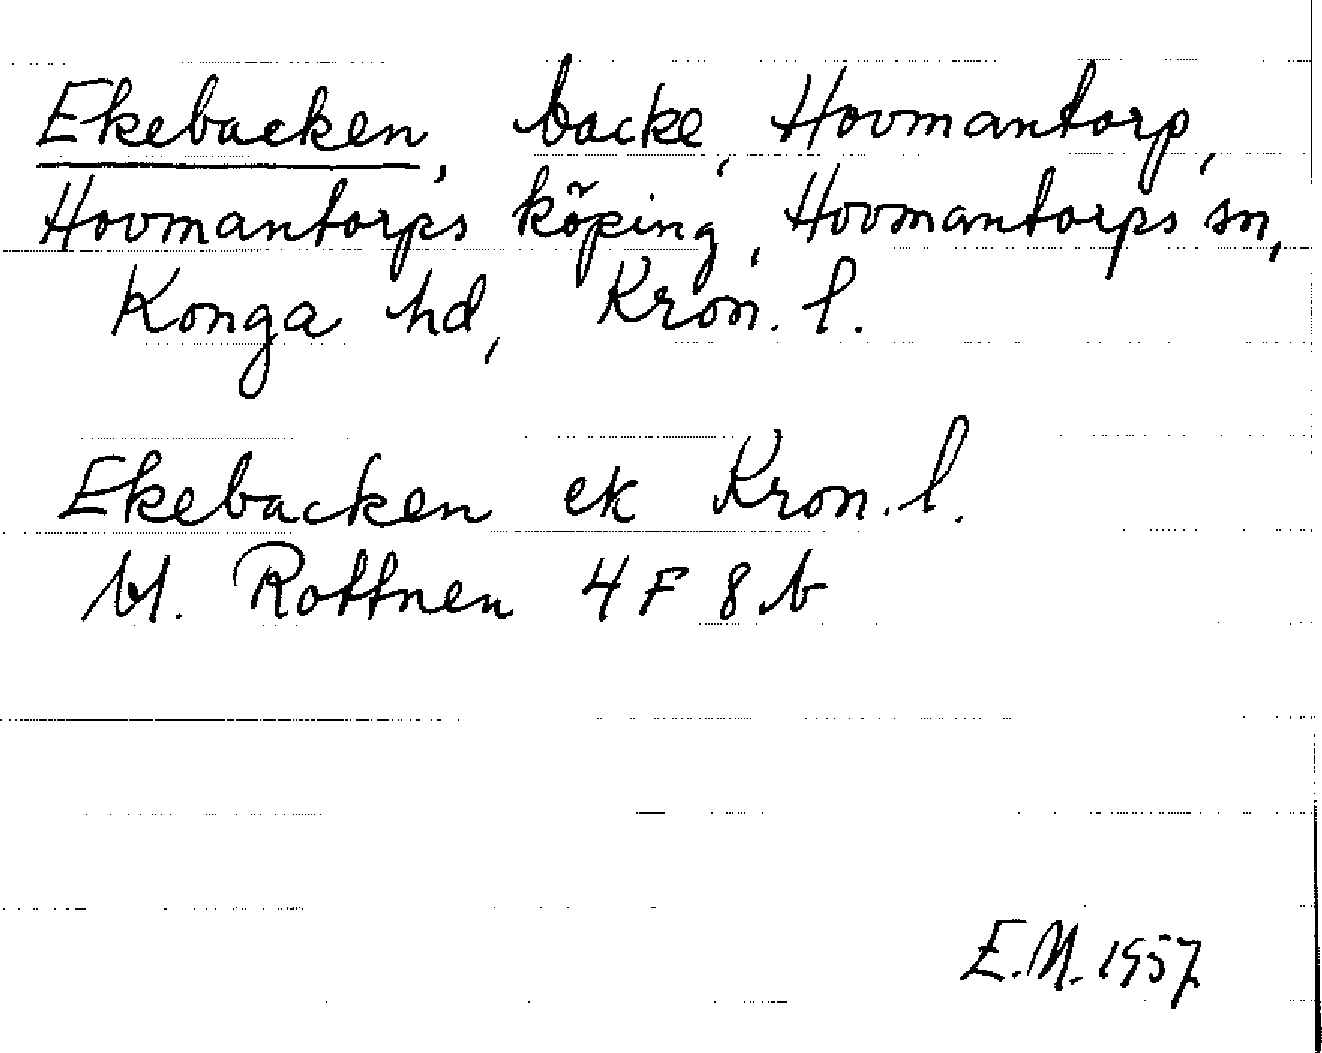 Ekebacken, backe, Hovmantorp,
Hovmantorps köping, Hovmantorps sn,
Konga hd, Kron. l.
Ekebacken ek Kron. l.
Rottnen 4 F 8 b
E.M. 1957